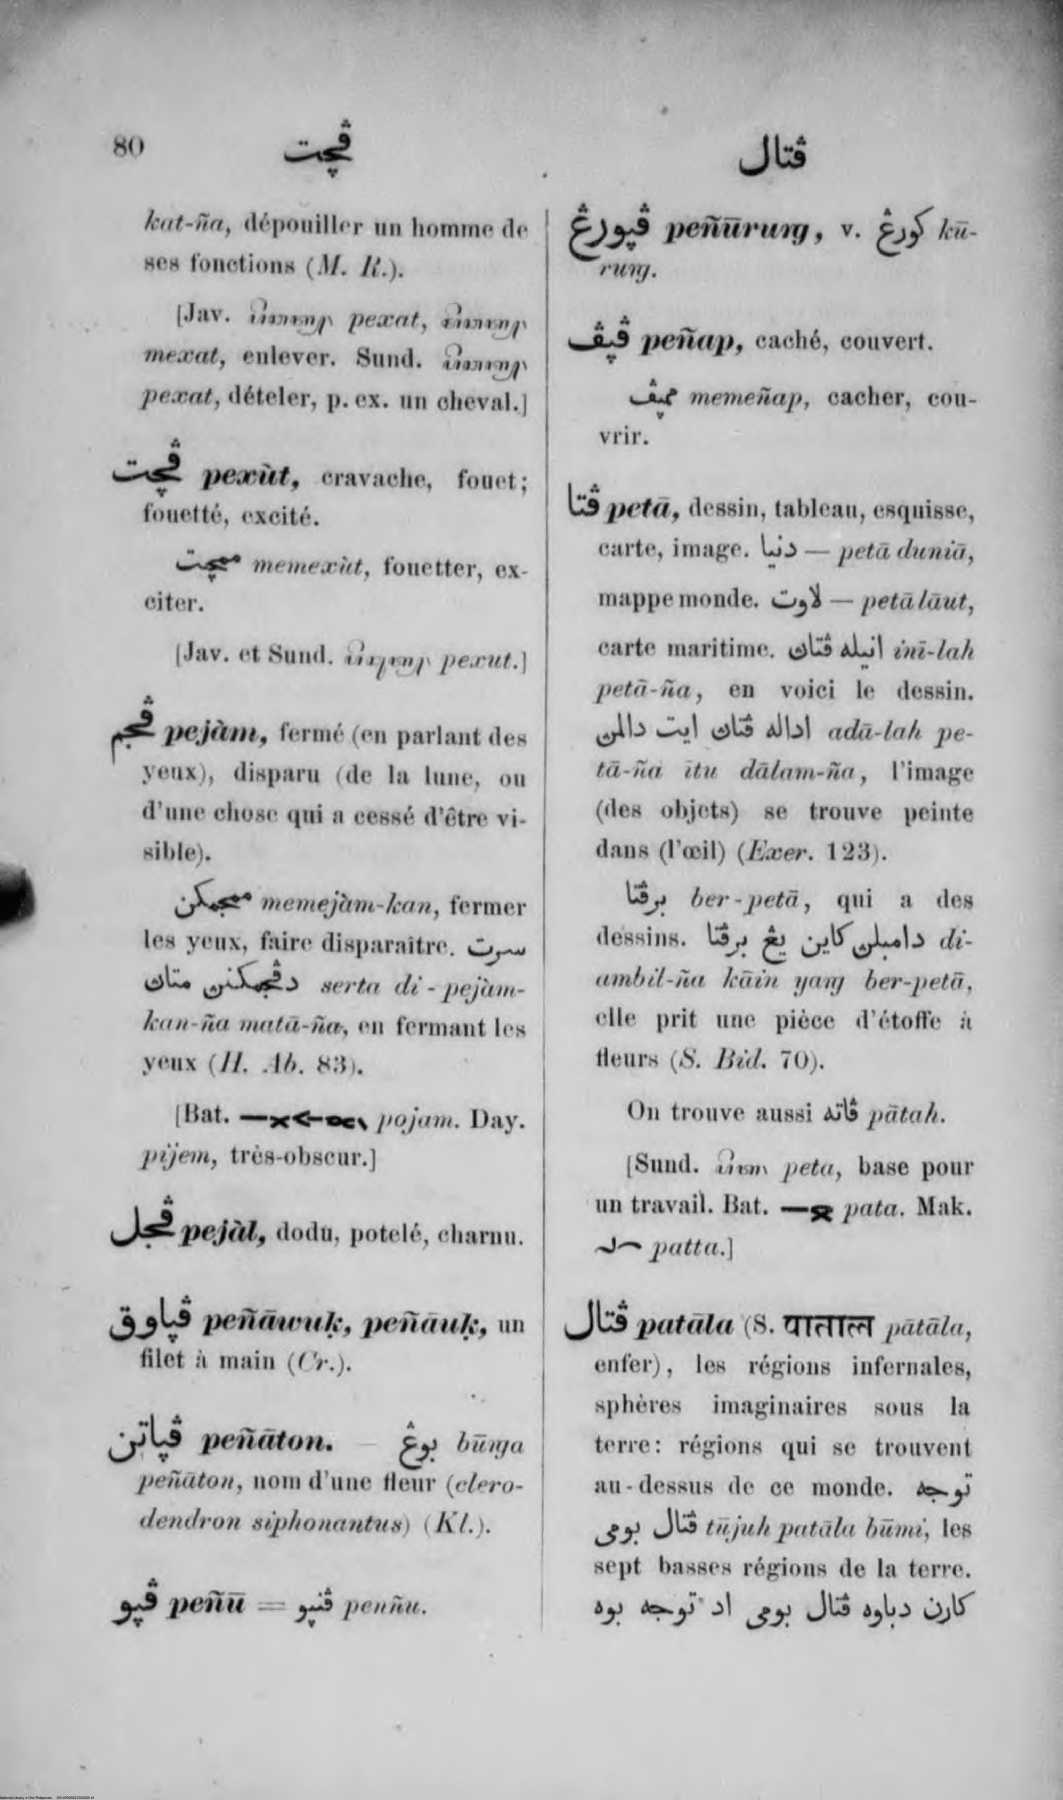 80
ڤچت
ڤتال
kat-ña, dépouiller un homme de
ses fonctions (M. R.).
[Jav. pexat,
mexat, enlever. Sund.
pexat, dételer, p. ex. un cheval.]
ڤچت pexùt, cravache, fouet;
fouetté, excité.
ممچت memexùt, fouetter, ex-
citer.
[Jav. et Sund. pexut.]
ڤجم pejàm, fermé (en parlant des
yeux), disparu (de la lune, ou
d'une chose qui a cessé d'être vi-
sible).
ممجمکن memejàm-kan, fermer
les yeux, faire disparaître. سرت
دڤجمکنڽ متاڽ serta di-pejàm-
kan-ña matā-ña, en fermant les
yeux (H. Ab. 83).
[Bat. pojam. Day.
pijem, très-obscur.]
ڤجل pejàl, dodu, potelé, charnu.
ڤڽاوق peñāwuḳ, peñāuḳ, un
filet à main (Cr.).
ڤڽاتن peñāton. — بوڠ būnga
peñāton, nom d'une fleur (clero-
dendron siphonantus) (Kl.).
ڤڽو peñū = ڤنڽو penñu.
ڤڽورڠ peñūrung, v. کورڠ kū-
rung.
ڤڽڤ peñap, caché, couvert.
ممڽڤ memeñap, cacher, cou-
vrir.
ڤتا petā, dessin, tableau, esquisse,
carte, image. دنيا — petā duniā,
mappemonde. لاوت — petā lāut,
carte maritime. انيله ڤتاڽ inī-lah
petā-ña, en voici le dessin.
اداله ڤتاڽ ايت دالمڽ adā-lah pe-
tā-ña ītu dālam-ña, l'image
(des objets) se trouve peinte
dans (l'œil) (Exer. 123).
برڤتا ber-petā, qui a des
dessins. دامبلڽ کاين يڠ برڤتا di-
ambil-ña kāin yang ber-petā,
elle prit une pièce d'étoffe à
fleurs (S. Bid. 70).
On trouve aussi ڤاته pātah.
[Sund. peta, base pour
un travail. Bat. pata. Mak.
patta.]
ڤتال patāla (S. पाताल pātāla,
enfer), les régions infernales,
sphères imaginaires sous la
terre: régions qui se trouvent
au-dessus de ce monde. توجه
ڤتال بومي tūjuh patāla būmi, les
sept basses régions de la terre.
کارن دباوه ڤتال بومي اد توجه بوه